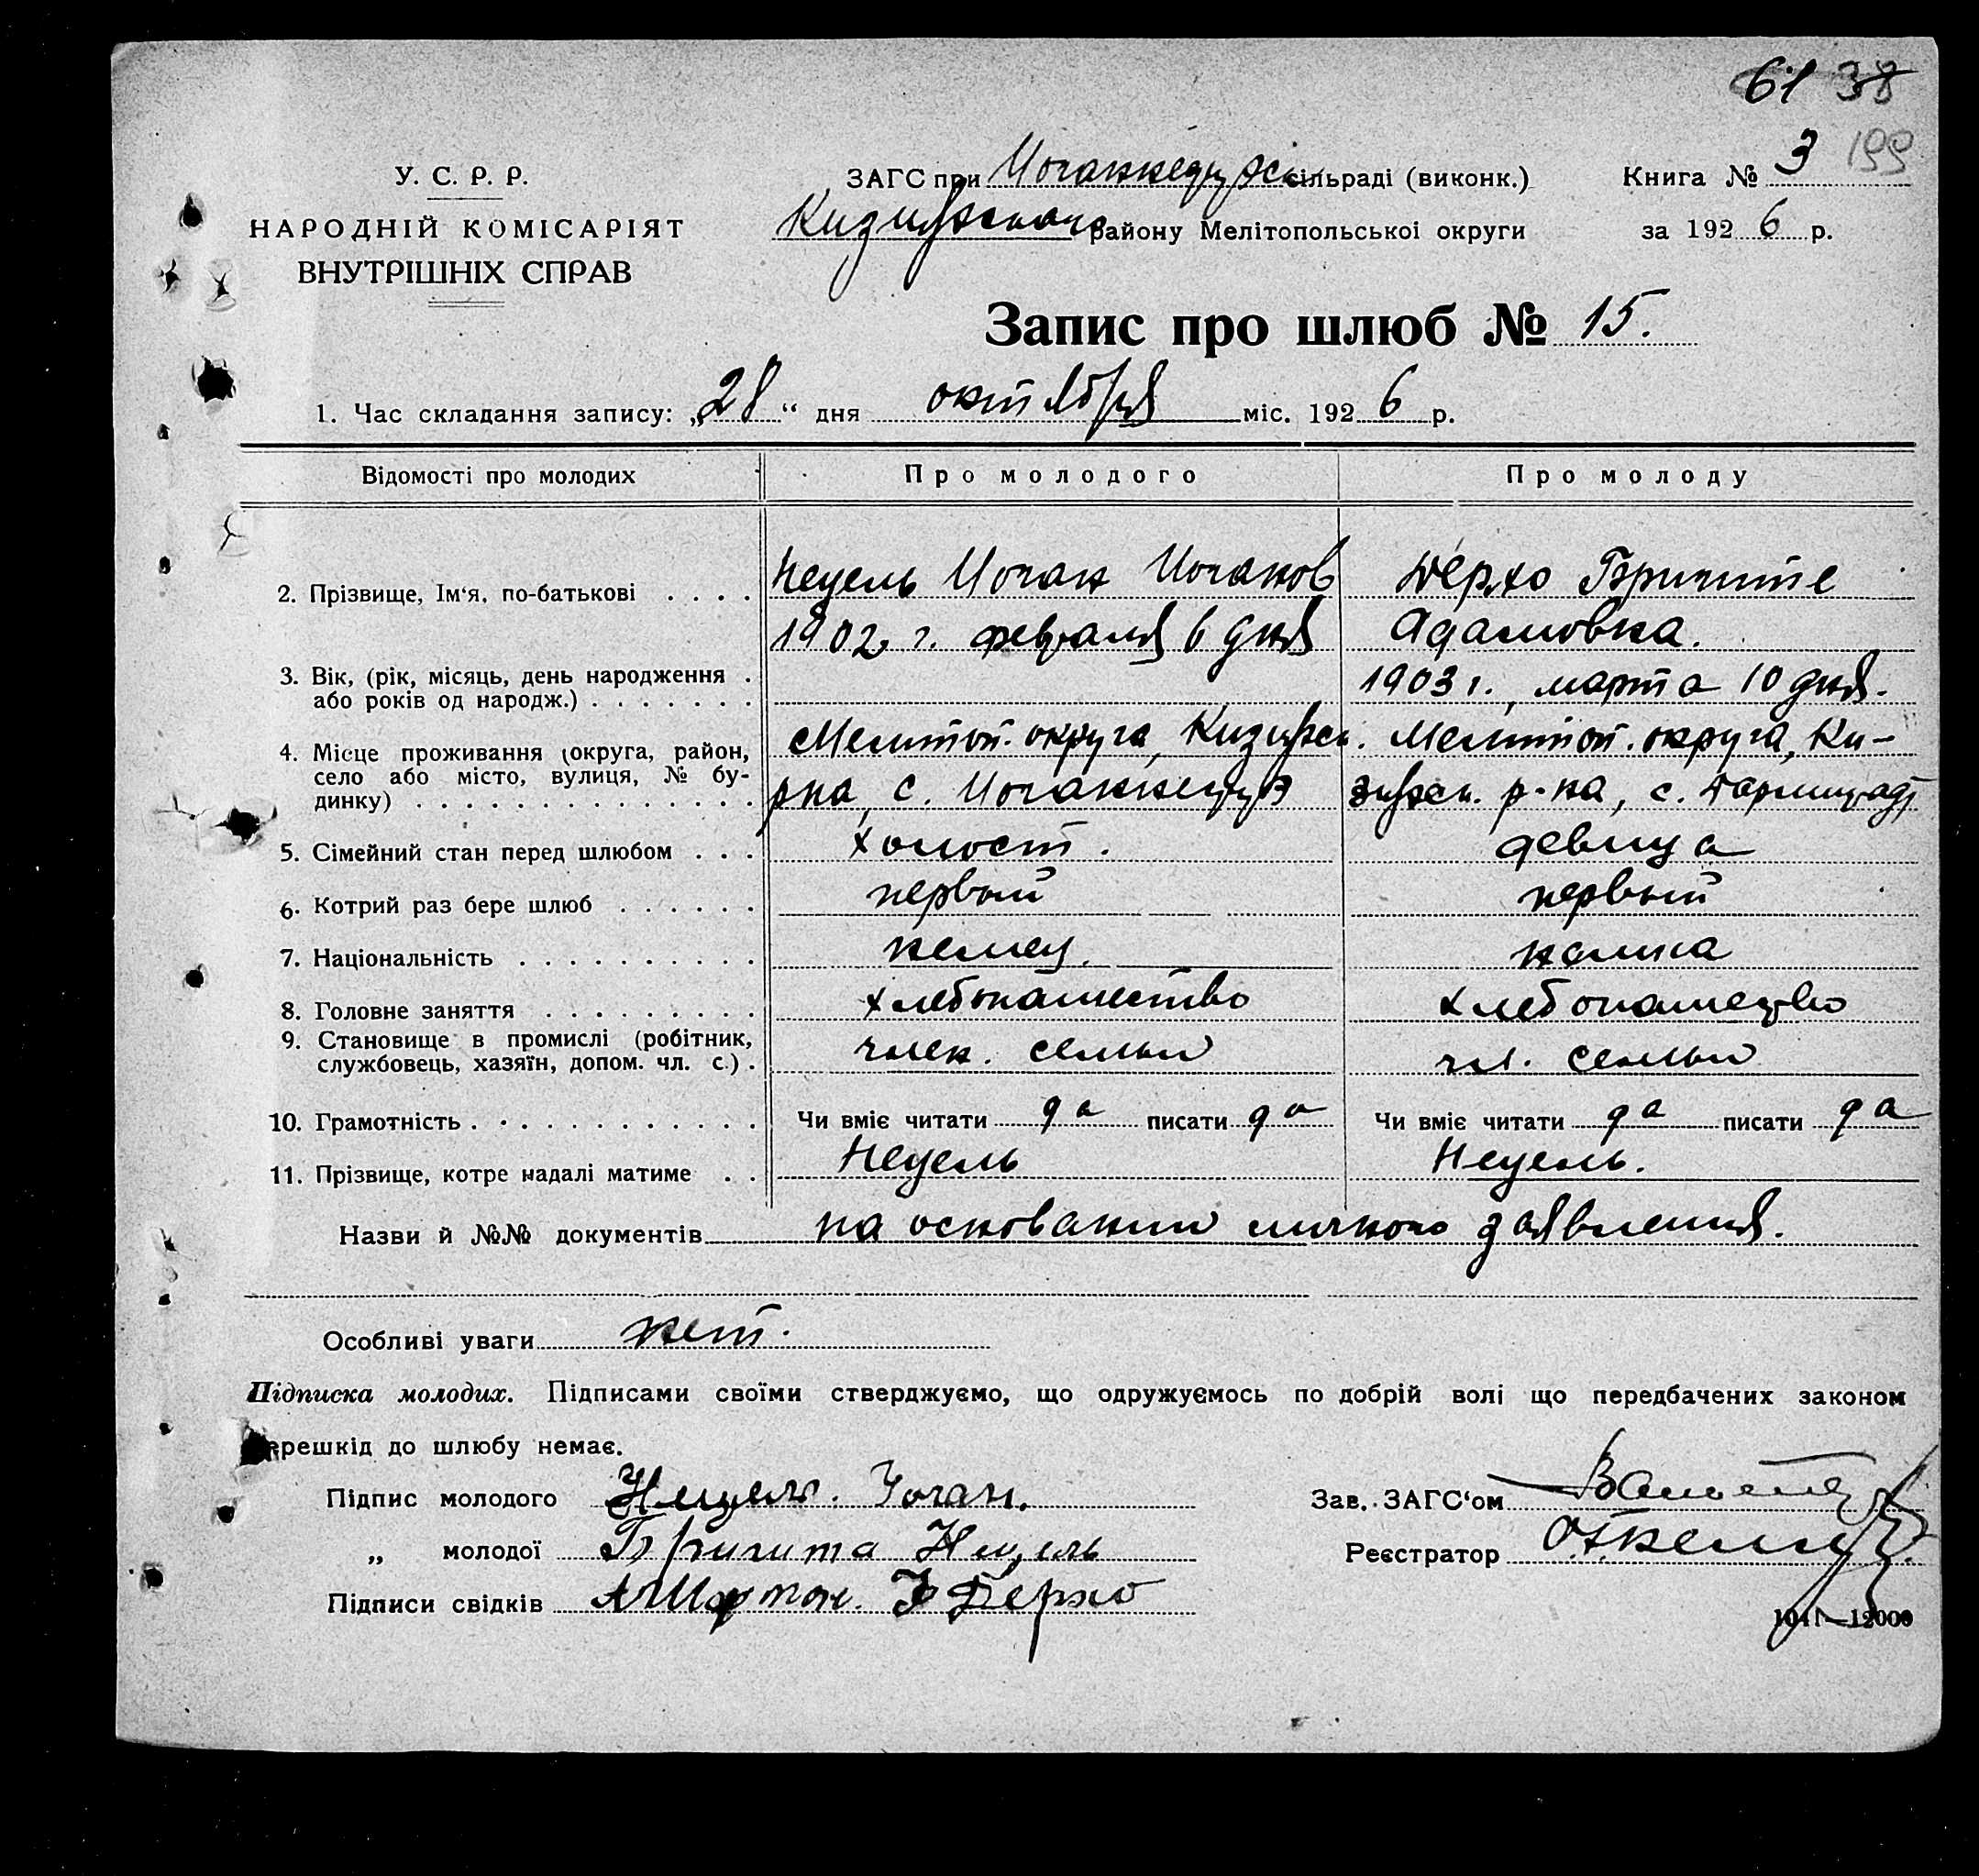 61 38
У. С. Р. Р.
НАРОДНІЙ КОМІСАРІЯТ
ВНУТРІШНІХ СПРАВ
ЗАГС при Иоганнедурзск сільраді (виконк.)
Книга № 3 199
Кизиярского району Мелітопольської округи
за 1926 р.
Запис про шлюб № 15.
1. Час складання запису: „28“ дня октября міс. 1926 р.
Відомості про молодих
Про молодого
Про молоду
2. Прізвище, Ім'я, по-батькові
Нецель Иоган Иоганов
1902 г. февраля 6 дня
Дерхо Бригите
Адамовна.
3. Вік, (рік, місяць, день народження
або років од народж.)
1903 г., марта 10 дня.
4. Місце проживання (округа, район,
село або місто, вулиця, № бу-
динку)
Мелитоп. округа, Кизиярск.
рна, с. Иоганнедурз
Мелитоп. округа, Ки-
зиярск. р-на, с. Дармштадт
5. Сімейний стан перед шлюбом
холост.
девица
6. Котрий раз бере шлюб
первый
первый
7. Національність
немец.
немка
8. Головне заняття
хлебопашество
хлебопашество
9. Становище в промислі (робітник,
службовець, хазяїн, допом. чл. с.)
член. семьи
чл. семьи
10. Грамотність
Чи вміє читати да писати да
Чи вміє читати да писати да
11. Прізвище, котре надалі матиме
Нецель
Нецель.
Назви й №№ документів на основании личного заявления.
Особливі уваги нет.
Підписка молодих. Підписами своїми стверджуємо, що одружуємось по добрій волі що передбачених законом
перешкід до шлюбу немає.
Підпис молодого Нецель. Иоган.
Зав. ЗАГС'ом
„ молодої Бригита Нецель
Реєстратор
Підписи свідків А Мартин. Дерхо
12000